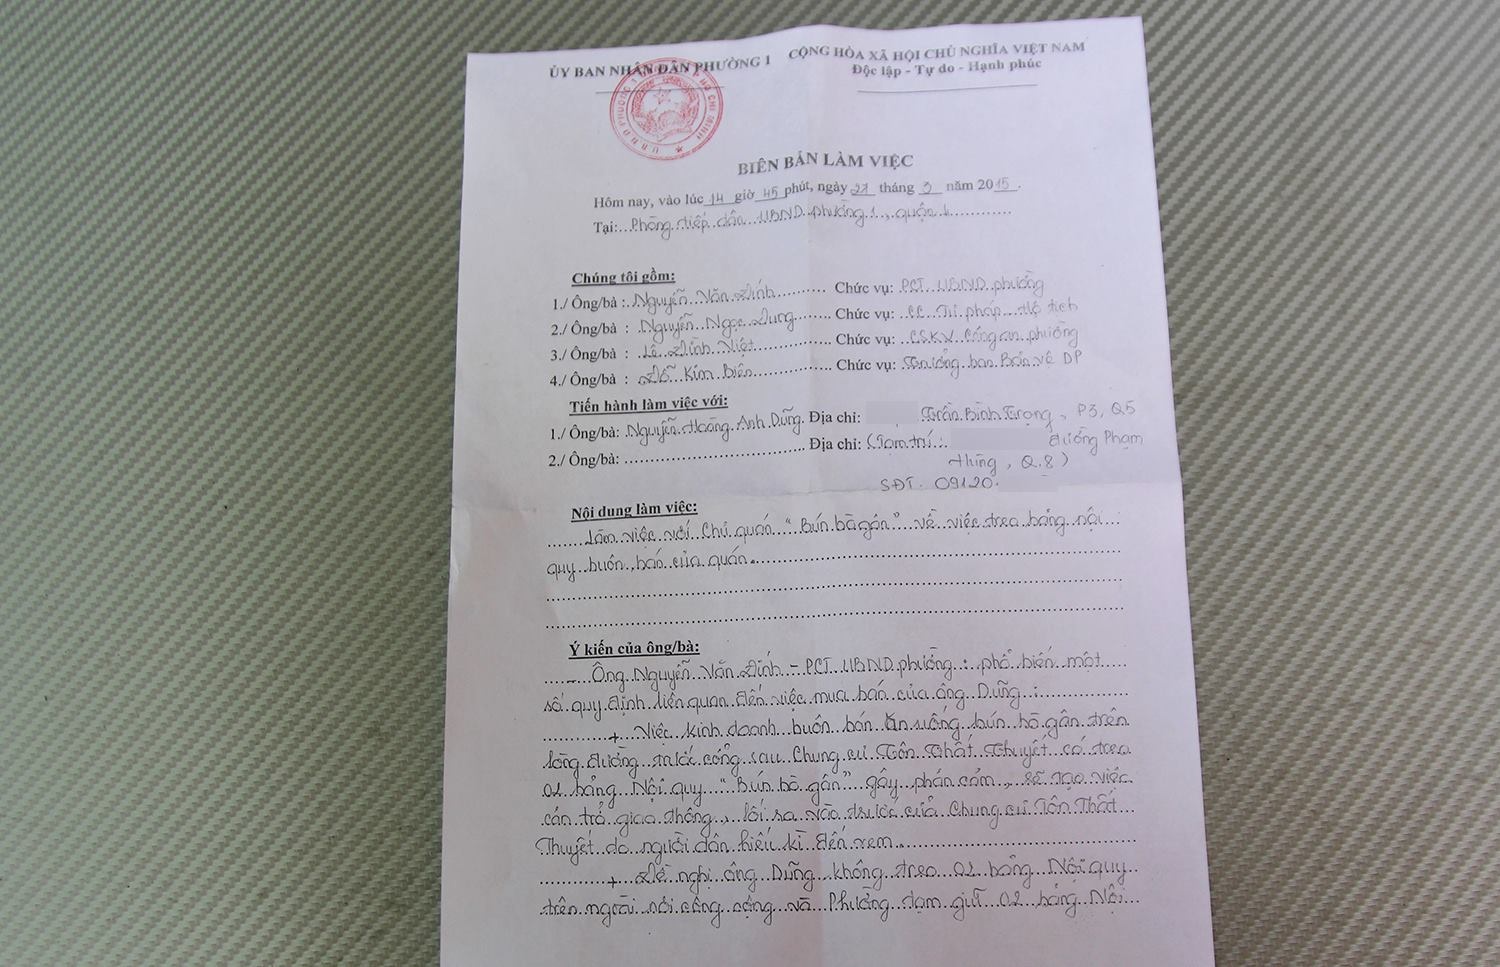 ỦY BAN NHÂN DÂN PHƯỜNG 1 CỘNG HÒA XÃ HỘI CHỦ NGHĨA VIỆT NAM
Độc lập - Tự do - Hạnh phúc
BIÊN BẢN LÀM VIỆC
Hôm nay, vào lúc 14 giờ 45 phút, ngày 27 tháng 3 năm 2015.
Tại: Phòng tiếp dân UBND phường 1, quận 4
Chúng tôi gồm:
1./ Ông/bà : Nguyễn Văn Đính Chức vụ: PCT UBND phường
2./ Ông/bà : Nguyễn Ngọc Dung Chức vụ: CC Tư pháp Hộ tịch
3./ Ông/bà : Lê Đình Việt Chức vụ: CSKV Công an phường
4./ Ông/bà : Đỗ Kim Biên Chức vụ: Trưởng ban Bảo vệ DP
Tiến hành làm việc với:
1./ Ông/bà: Nguyễn Hoàng Anh Dũng. Địa chỉ: Trần Bình Trọng, P3, Q5
2./ Ông/bà: Địa chỉ: (Tạm trú: đường Phạm
Hùng, Q.8)
SĐT. 09120.
Nội dung làm việc:
Làm việc với Chủ quán "Bún bò gân" về việc treo bảng nội
quy buôn bán của quán.
Ý kiến của ông/bà:
- Ông Nguyễn Văn Đính - PCT UBND phường : phổ biến một
số quy định liên quan đến việc mua bán của ông Dũng :
+ Việc kinh doanh buôn bán ăn uống bún bò gân trên
lòng đường trước cổng sau Chung cư Tôn Thất Thuyết có treo
02 bảng Nội quy "Bún bò gân" gây phản cảm, sẽ tạo việc
cản trở giao thông, lối ra vào trước của Chung cư Tôn Thất
Thuyết do người dân hiếu kì đến xem.
+ Đề nghị ông Dũng không treo 02 bảng Nội quy
trên ngoài nơi công cộng và Phường tạm giữ 02 bảng Nội